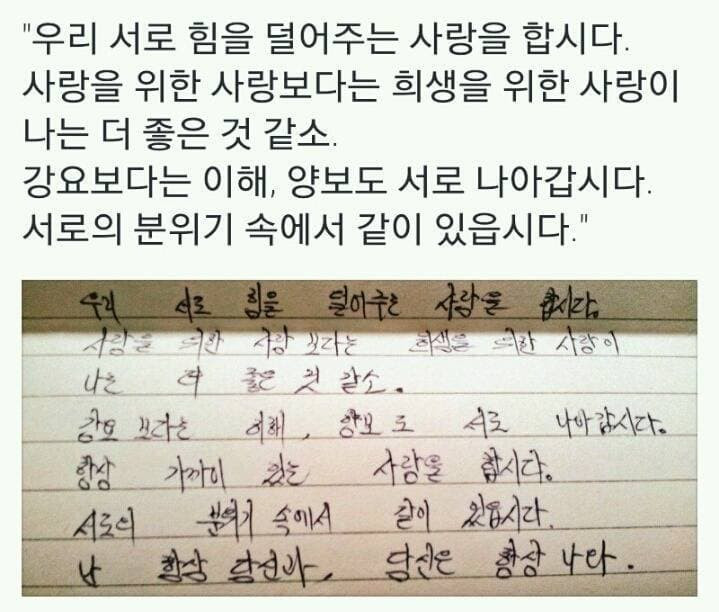 "우리 서로 힘을 덜어주는 사랑을 합시다.
사랑을 위한 사랑보다는 희생을 위한 사랑이
나는 더 좋은 것 같소.
강요보다는 이해, 양보도 서로 나아갑시다.
서로의 분위기 속에서 같이 있읍시다."
우리 서로 힘을 덜어주는 사랑을 합시다.
사랑을 위한 사랑보다는 희생을 위한 사랑이
나는 더 좋은 것 같소.
강요보다는 이해, 양보도 서로 나아갑시다.
항상 가까이 있는 사랑을 합시다.
서로의 분위기 속에서 같이 있읍시다.
난 항상 당신과, 당신은 항상 나와.